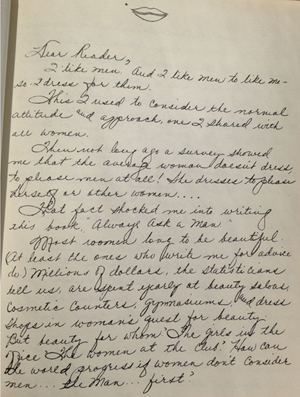 Dear Reader,
I like men. And I like men to like me -
so I dress for them.
This I used to consider the normal
attitude and approach, one I shared with
all women.
Then not long ago a survey showed
me that the average woman doesn't dress
to please men at all! She dresses to please
herself or other women....
That fact shocked me into writing
this book, "Always Ask a Man."
Most women long to be beautiful.
(At least the ones who write me for advice
do.) Millions of dollars, the statisticians
tell us, are spent yearly at beauty salons,
cosmetic counters, gymnasiums and dress
shops in woman's quest for beauty.
But beauty for whom? The girls in the
office? The women at the club? How can
the world progress if women don't consider
men... the Man... first?